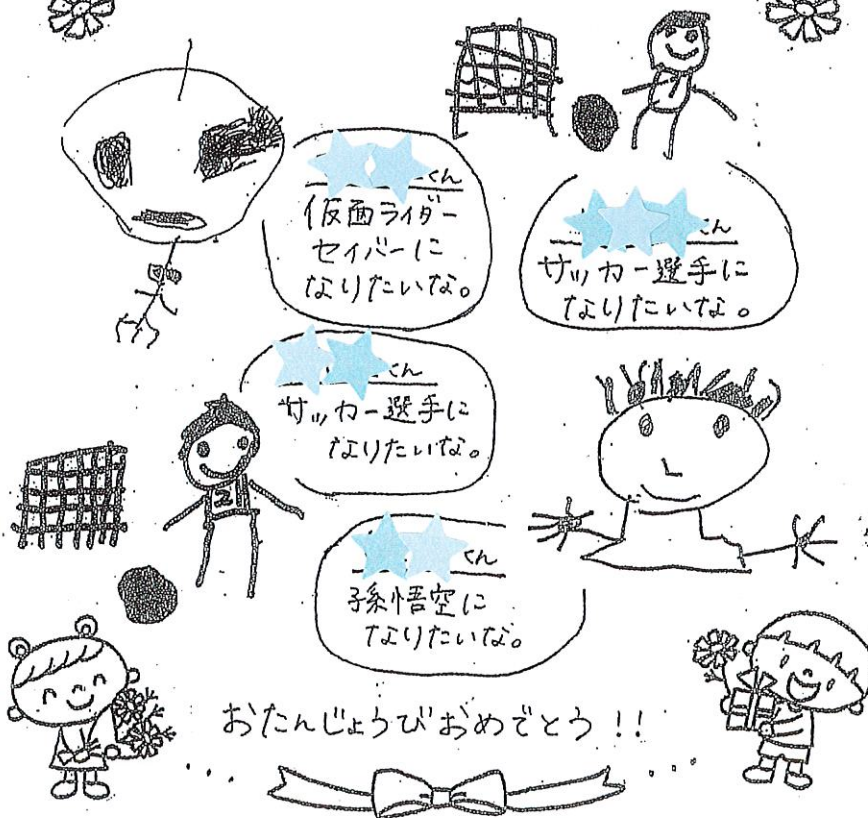 くん
仮面ライダー
セイバーに
なりたいな。
くん
サッカー選手に
なりたいな。
くん
サッカー選手に
なりたいな。
2
くん
孫悟空に
なりたいな。
おたんじょうびおめでとう!!